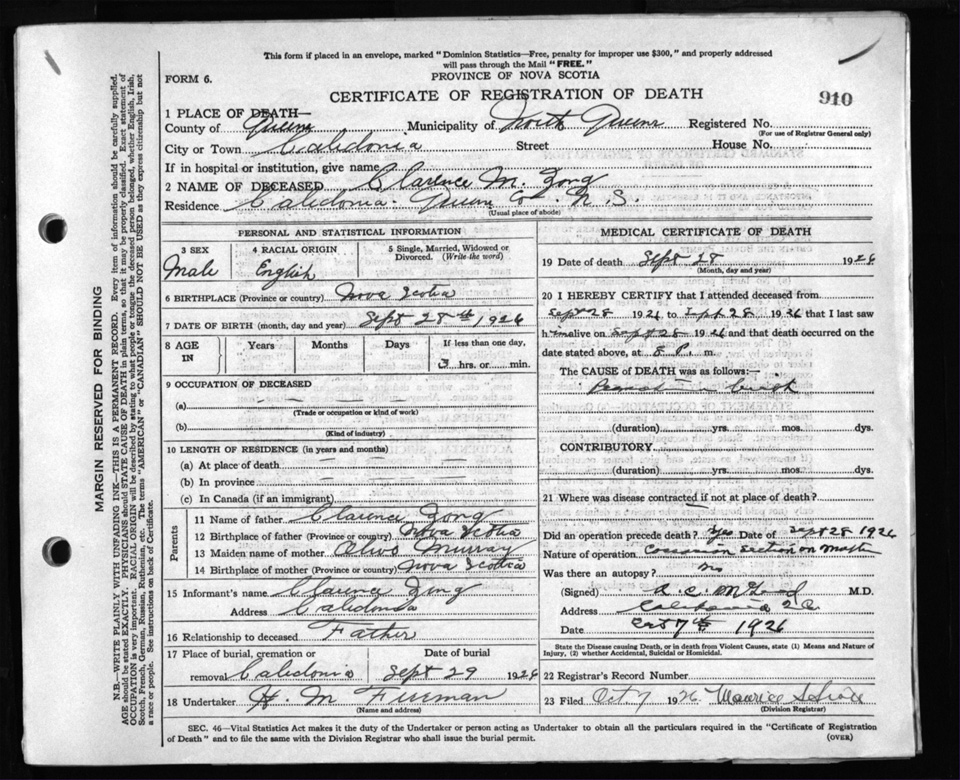 This form if placed in an envelope, marked "Dominion Statistics—Free, penalty for improper use $300," and properly addressed
will pass through the Mail "FREE."
FORM 6.
PROVINCE OF NOVA SCOTIA
CERTIFICATE OF REGISTRATION OF DEATH
910
1 PLACE OF DEATH—
County of Queens Municipality of North Queens Registered No.
(For use of Registrar General only)
City or Town Caledonia Street House No.
If in hospital or institution, give name
2 NAME OF DECEASED Clarence M. Zong
Residence Caledonia. Queens Co. N. S.
(Usual place of abode)
PERSONAL AND STATISTICAL INFORMATION
3 SEX
Male
4 RACIAL ORIGIN
English
5 Single, Married, Widowed or
Divorced. (Write the word)
6 BIRTHPLACE (Province or country) Nova Scotia
7 DATE OF BIRTH (month, day and year) Sept 28th 1926
8 AGE IN
Years Months Days If less than one day,
3 hrs. or min.
9 OCCUPATION OF DECEASED
(a)
(Trade or occupation or kind of work)
(b)
(Kind of industry)
10 LENGTH OF RESIDENCE (in years and months)
(a) At place of death
(b) In province
(c) In Canada (if an immigrant)
Parents
11 Name of father Clarence Zong
12 Birthplace of father (Province or country) Nova Scotia
13 Maiden name of mother Murray
14 Birthplace of mother (Province or country) Nova Scotia
15 Informant's name Clarence Zong
Address Caledonia
16 Relationship to deceased Father
17 Place of burial, cremation or
removal Caledonia
Date of burial
Sept 29 1926
18 Undertaker H. M. Freeman
(Name and address)
MEDICAL CERTIFICATE OF DEATH
19 Date of death Sept 28 1926
(Month, day and year)
20 I HEREBY CERTIFY that I attended deceased from
Sept 28 1926 to Sept 28 1926 that I last saw
him alive on Sept 28 1926 and that death occurred on
date stated above, at 8 P. m.
The CAUSE of DEATH was as follows:—
Premature birth
(duration) yrs. mos. dys.
CONTRIBUTORY
(duration) yrs. mos. dys.
21 Where was disease contracted if not at place of death?
Did an operation precede death? Yes Date of Sept 28 1926
Nature of operation section on
Was there an autopsy? no
(Signed) A. C. M.D.
Address
Date Oct 7th 1926
State the Disease causing Death, or in death from Violent Causes, state (1) Means and Nature of
Injury, (2) whether Accidental, Suicidal or Homicidal.
22 Registrar's Record Number
23 Filed Oct 7 1926 Maurice
(Division Registrar)
SEC. 46—Vital Statistics Act makes it the duty of the Undertaker or person acting as Undertaker to obtain all the particulars required in the "Certificate of Registration
of Death" and to file the same with the Division Registrar who shall issue the burial permit.
(OVER)
MARGIN RESERVED FOR BINDING
N.B.—WRITE PLAINLY WITH UNFADING INK—THIS IS A PERMANENT RECORD. Every item of information should be carefully supplied.
AGE should be stated EXACTLY. PHYSICIANS should STATE CAUSE OF DEATH in plain terms, so that it may be properly classified. Exact statement of
OCCUPATION is very important. RACIAL ORIGIN will be described by stating to what people or tongue the deceased person belonged, whether English, Irish,
Scotch, French, German, Russian, Ruthenian, etc. The terms "AMERICAN" or "CANADIAN" SHOULD NOT BE USED as they express citizenship but not
a race or people. See instructions on back of Certificate.